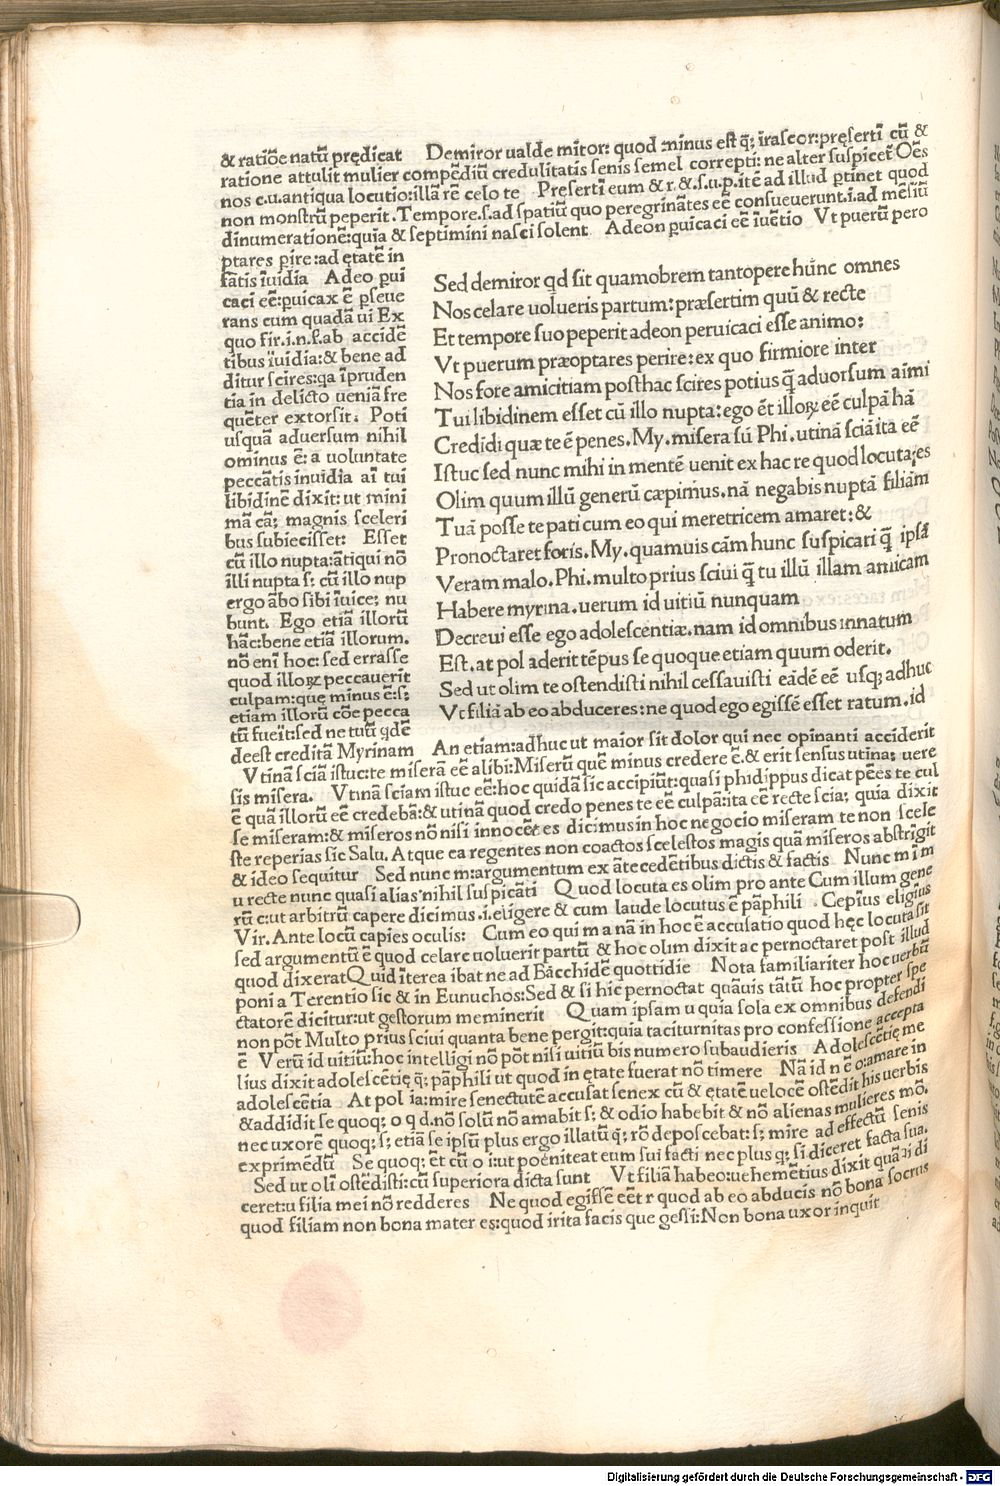 & ratiõe natũ prędicat Demiror ualde miror: quod minus est q̃; irascor: pręserti cũ &
ratione attulit mulier compẽdiũ credulitatis senis semel correpti: ne alter suspicet Oẽs
nos c.u. antiqua locutio: illã rẽ celo te Preserti eum & r.&.s.u.p. itẽ ad illud ꝑtinet quod
non monstrũ peperit. Tempore.s. ad spatiũ quo peregrinãtes eẽ consueuerunt.i. ad mẽsiũ
dinumerationẽ: quia & septimini nasci solent Adeon ꝑuicaci eẽ iuẽtio Vt puerũ pero
ptares ꝑire: ad ętatẽ in
fãtis ĩuidia Adeo ꝑui
caci eẽ: ꝑuicax ẽ ꝑseue
rans cum quadã ui Ex
quo fir.i.n.f. ab accidẽ
tibus ĩuidia: & bene ad
ditur scires: qa ĩpruden
tia in delicto ueniã fre
quẽter extorsit. Poti
usquã aduersum nihil
ominus ẽ: a uoluntate
peccãtis inuidia ai tui
libidinẽ dixit: ut mini
mã cã; magnis sceleri
bus subiecisset: Esset
cũ illo nupta: ãtiqui nõ
illi nupta s: cũ illo nup
ergo ãbo sibi iuice; nu
bunt. Ego etiã illorũ
hãc: bene etiã illorum.
nõ eni hoc: sed errasse
quod illoꝝ peccauerit
culpam: que minus ẽ: s;
etiam illorũ cõe pecca
tũ fueit: sed ne tutũ qdẽ
deest creditã Myrinam
Sed demiror qd sit quamobrem tantopere hũnc omnes
Nos celare uolueris partum: præsertim quũ & recte
Et tempore suo peperit adeon peruicaci esse animo:
Vt puerum præoptares perire: ex quo firmiore inter
Nos fore amicitiam posthac scires potius q̃ aduorsum aimi
Tui libidinem esset cũ illo nupta: ego ẽt illoꝝ eẽ culpã hã
Credidi quæ te ẽ penes. My. misera sũ Phi. utinã sciã ita eẽ
Istuc sed nunc mihi in mentẽ uenit ex hac re quod locuta es
Olim quum illũ generũ cæpimus. nã negabis nuptã filiãm
Tuã posse te pati cum eo qui meretricem amaret: &
Pronoctaret foris. My. quamuis cãm hunc suspicari q̃ ipsã
Veram malo. Phi. multo prius sciui q̃ tu illũ illam amicam
Habere myrina. uerum id uitiũ nunquam
Decreui esse ego adolescentiæ. nam id omnibus innatum
Est. at pol aderit tẽpus se quoque etiam quum oderit.
Sed ut olim te ostendisti nihil cessauisti eãdẽ eẽ usq; adhuc
Vt filiã ab eo abduceres: ne quod ego egissẽ esset ratum. id
An etiam: adhuc ut maior sit dolor qui nec opinanti acciderit
Vtinã sciã istuc: te miserã eẽ alibi: Miserũ quẽ minus credere ẽ. & erit sensus utina; uere
sis misera. Vtinã sciam istuc eẽ: hoc quidã sic accipiũt: quasi phidippus dicat pẽes te cul
ẽ quã illorũ eẽ credebã: & utinã quod credo penes te eẽ culpã: ita eẽ recte scia; quia dixit
se miseram: & miseros nõ nisi innocẽtes dicimus in hoc negocio miseram te non scele
ste reperias sic Salu. Atque ea regentes non coactos scelestos magis quã miseros abstrigit
& ideo sequitur Sed nunc m: argumentum ex ãtecedẽtibus dictis & factis Nunc m i m
u recte nunc quasi alias nihil suspicãti Quod locuta es olim pro ante Cum illum gene
rũ c: ut arbitrũ capere dicimus.i. eligere & cum laude locutus ẽ pãphili. Cepius eligius
Vir. Ante locũ capies oculis: Cum eo qui m a nã in hoc ẽ accusatio quod hęc locuta sit
sed argumentũ ẽ quod celare uoluerit partũ & hoc olim dixit ac pernoctaret post illud
quod dixerat Quid iterea ibat ne ad Bacchidẽ quottidie Nota familiariter hoc uerbũ
poni a Terentio sic & in Eunuchos: Sed & si hic pernoctat quãuis tãtũ hoc propter spe
ctatorẽ dicitur: ut gestorum meminerit Quam ipsam u quia sola ex omnibus defendi
non põt Multo prius sciui quanta bene pergit: quia taciturnitas pro confessione accepta
ẽ Verũ id uitiũ: hoc intelligi nõ põt nisi uitiũ bis numero subaudieris Adolescẽtię me
lius dixit adolescẽtię q̃: pãphili ut quod in ętate fuerat nõ timere Nã id n ẽ o: amare in
adolescẽtia At pol ia: mire senectutẽ accusat senex cũ & ętatẽ uelocẽ ostẽdit his uerbis
& addidit se quoq; o q d. nõ solũ nõ amabit s: & odio habebit & nõ alienas mulieres mõ.
nec uxorẽ quoq; s; etiã se ipsũ plus ergo illatũ q̃; rõ deposcebat: s; mire ad effectũ senis
exprimẽdũ Se quoq; ẽt cũ o i: ut poeniteat eum sui facti nec plus q; si diceret facta sua.
Sed ut oli ostẽdisti: cũ superiora dicta sunt Vt filiã habeo: uehemẽtius dixit quã si di
ceret: u filia mei nõ redderes Ne quod egissẽ eẽt r quod ab eo abducis nõ bona socrus
quod filiam non bona mater es: quod irita facis que gessi: Non bona uxor inquit
Digitalisierung gefördert durch die Deutsche Forschungsgemeinschaft - DFG